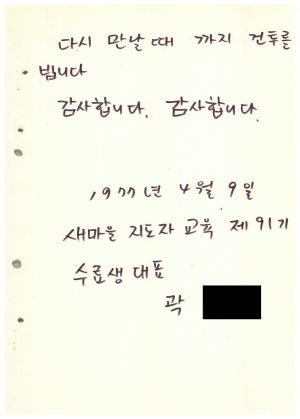 다시 만날 때 까지 건투를
빕니다
감사합니다. 감사합니다.
1977년 4월 9일
새마을 지도자 교육 제91기
수료생 대표
곽